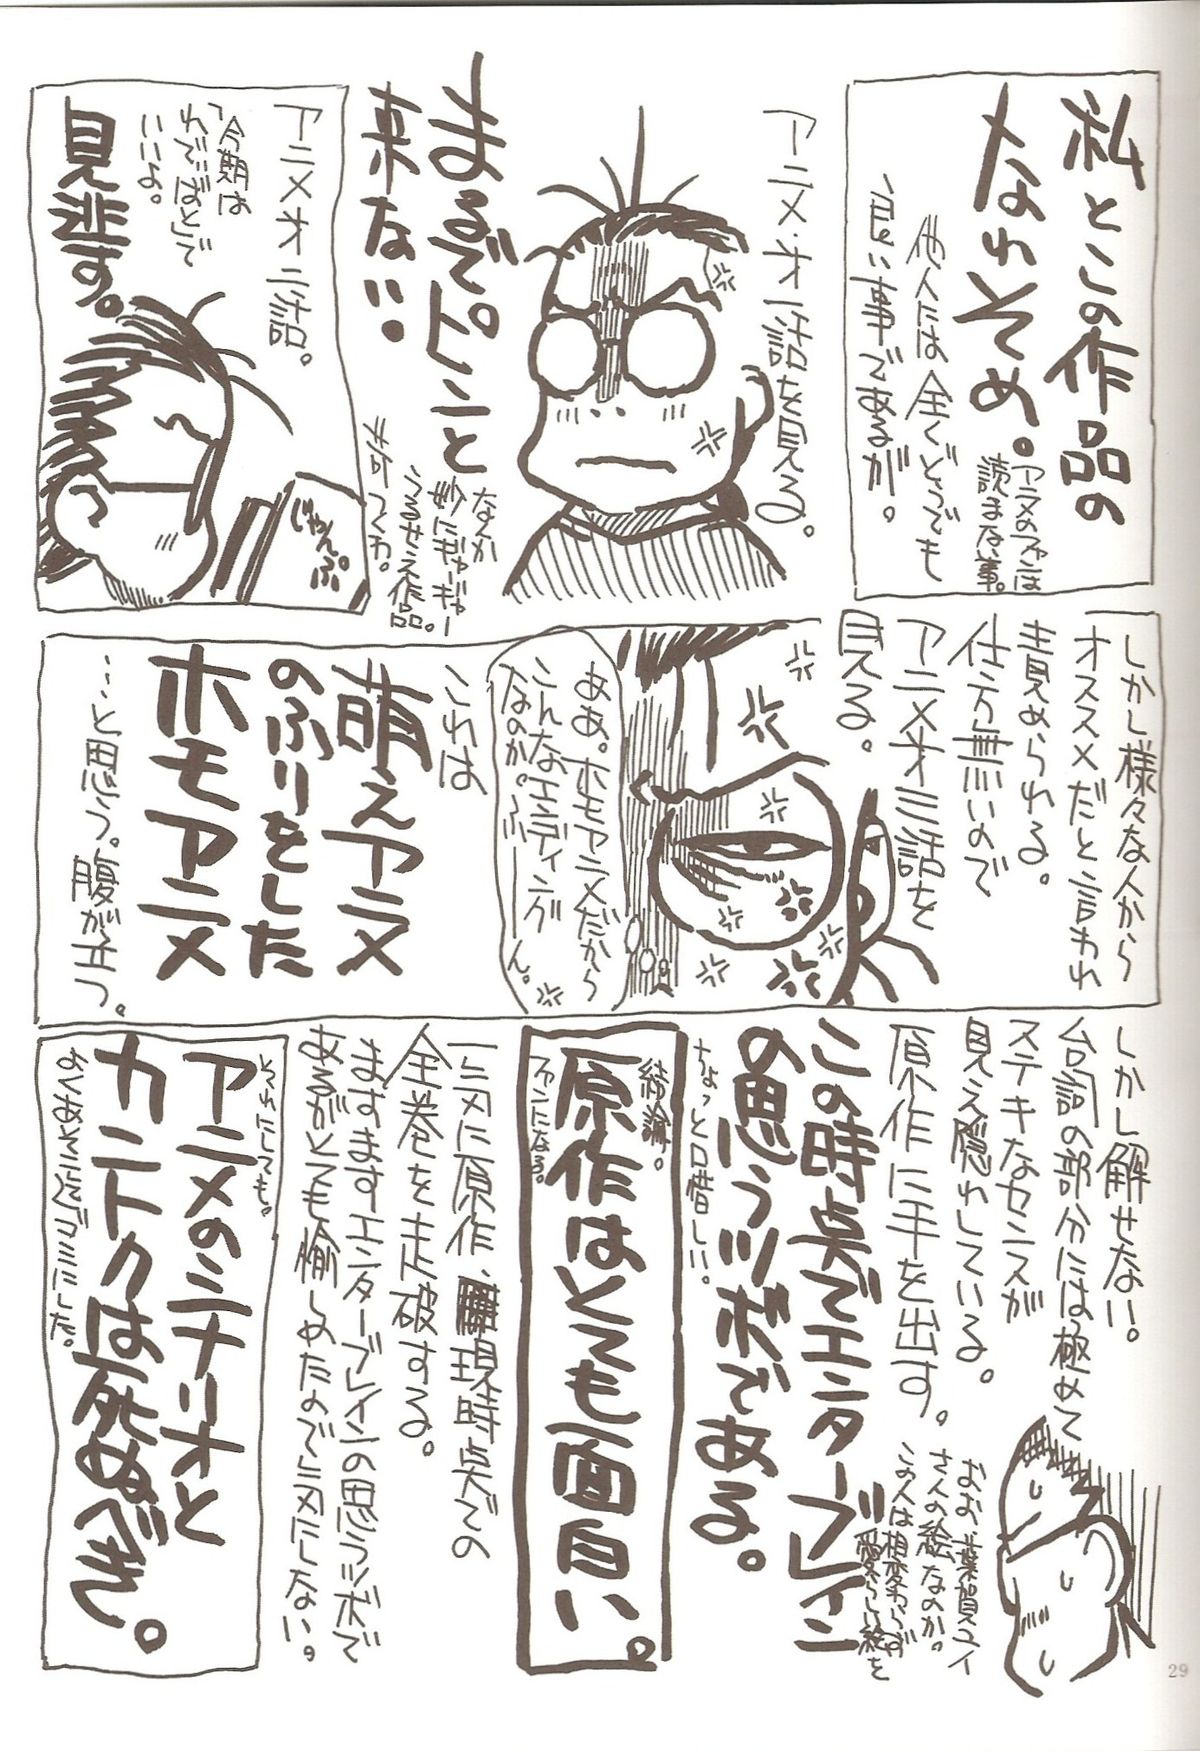 私とこの作品の
なれそめ。
アニメのファンは
読まない事。
他人には全くどうでも
良い事であるが。
アニメオ一話を見る。
まるでピンと
来ない。
なんか
妙にギャーギャー
うるせえ作品。
アニメオ二話。
「今期は
わがばとで
いいよ。
見逃す。
じゃんぷ
しかし様々な人から
オススメだと言われ
責められる。
仕方無いので
アニメオ三話を
見る。
ああ。ホモアニメだから
こんなエンディング
なのか。ふーーん。
これは
萌えアニメ
のふりをした
ホモアニメ
…と思う。腹が立つ。
しかし解せない。
台詞の部分には極めて
ステキなセンスが
見え隠れしている。
原作に手を出す。
おお、葉賀ユイ
さんの絵なのか。
この人は相変わらず
愛らしい絵を
この時点でエンターブレイン
の思うツボである。
ちょっと口惜しい。
結論。
原作はとても面白い。
ファンになる。
一気に原作、現時点での
全巻を走破する。
ますますエンターブレインの思うツボで
あるがとても愉しめたので気にしない。
それにしても。
アニメのシナリオと
カントクは死ぬべき。
29